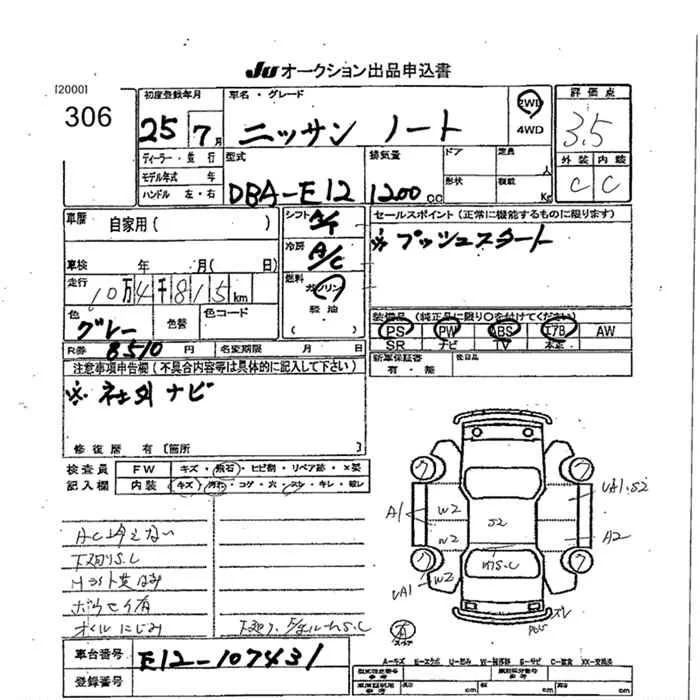 JU オークション出品申込書
[2000]
306
初度登録年月 車名・グレード 2WD 評価点
25 7月 ニッサン ノート 4WD 3.5
ディーラー・並行 型式 排気量 ドア 定員 人 外装 内装
モデル年式 年
ハンドル 左・右 DBA-E12 1200cc 形状 積載 Kg C C
車歴 自家用( ) シフト A/T セールスポイント(正常に機能するものに限ります)
冷房 A/C ※プッシュスタート
車検 年 月( 日)
走行 10万4千815km 燃料 ガソリン
軽油
( )
色 グレー 色替 色コード 装備品(純正品に限り○を付けてください)
PS PW ABS エアB AW
SR ナビ TV 本革
R券 8510円 名変期限 月 日 新車保証書 後日品
有・無
注意事項申告欄(不具合内容等は具体的に記入して下さい)
※社外ナビ
修復歴 有〔箇所
検査員 FW キズ・飛石・ヒビ割・リペア跡・×要
記入欄 内装 キズ・汚れ・コゲ・穴・スレ・キレ・破レ
AC冷えない
下廻りS.C
ボウセイ有
オイルにじみ
A1 W2 S2 UA1・S2
W2 A2
UA1 W2 スレ
車台番号 E12-107431
登録番号
A=キズ E=エクボ U=凹み W=補修跡 S=サビ C=腐食 XX=交換済